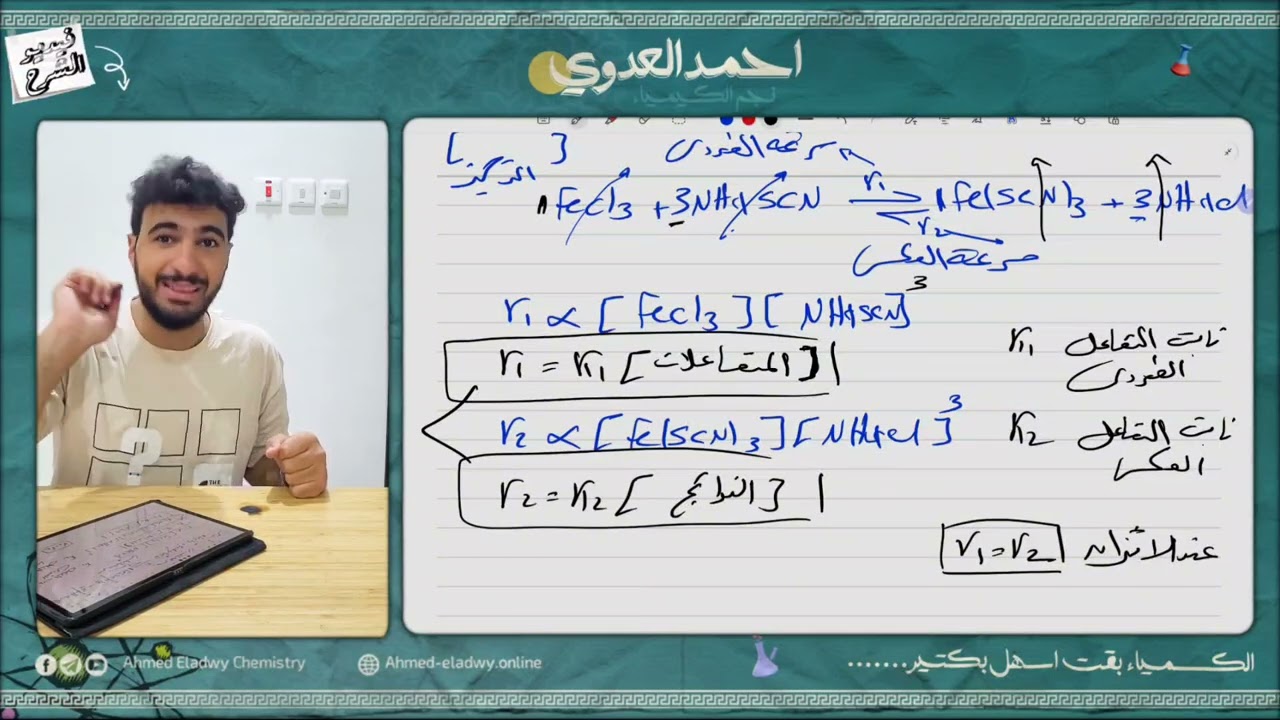 فيديو
الشرح
احمد العدوي
نجم الكيمياء
[ ] سرعة الطردى
التركيز
1FeCl3 + 3NH4SCN ⇌ 1Fe(SCN)3 + 3NH4Cl
r1
r2
سرعة العكسى
r1 ∝ [FeCl3][NH4SCN]3
r1 = K1 [المتفاعلات]
K1 ثابت التفاعل
الطردى
r2 ∝ [Fe(SCN)3][NH4Cl]3
K2 ثابت التفاعل
العكسى
r2 = K2 [النواتج]
عند الاتزان r1 = r2
THE
Ahmed Eladwy Chemistry
Ahmed-eladwy.online
الكـــمياء بقت اسهل بكتير.......